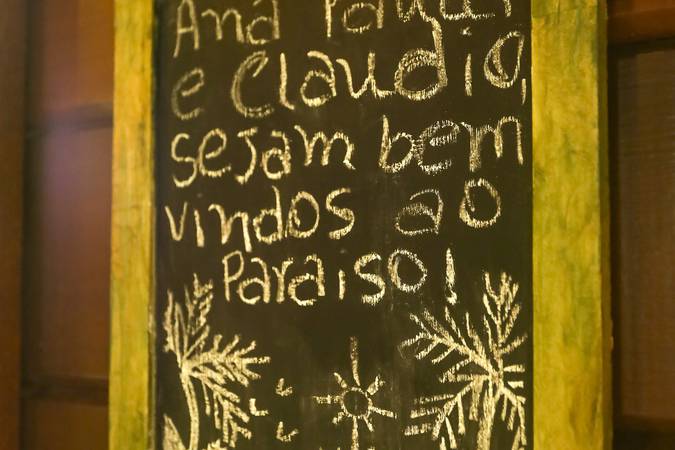 Ana Paula
e Claudio,
sejam bem
vindos ao
Paraiso!